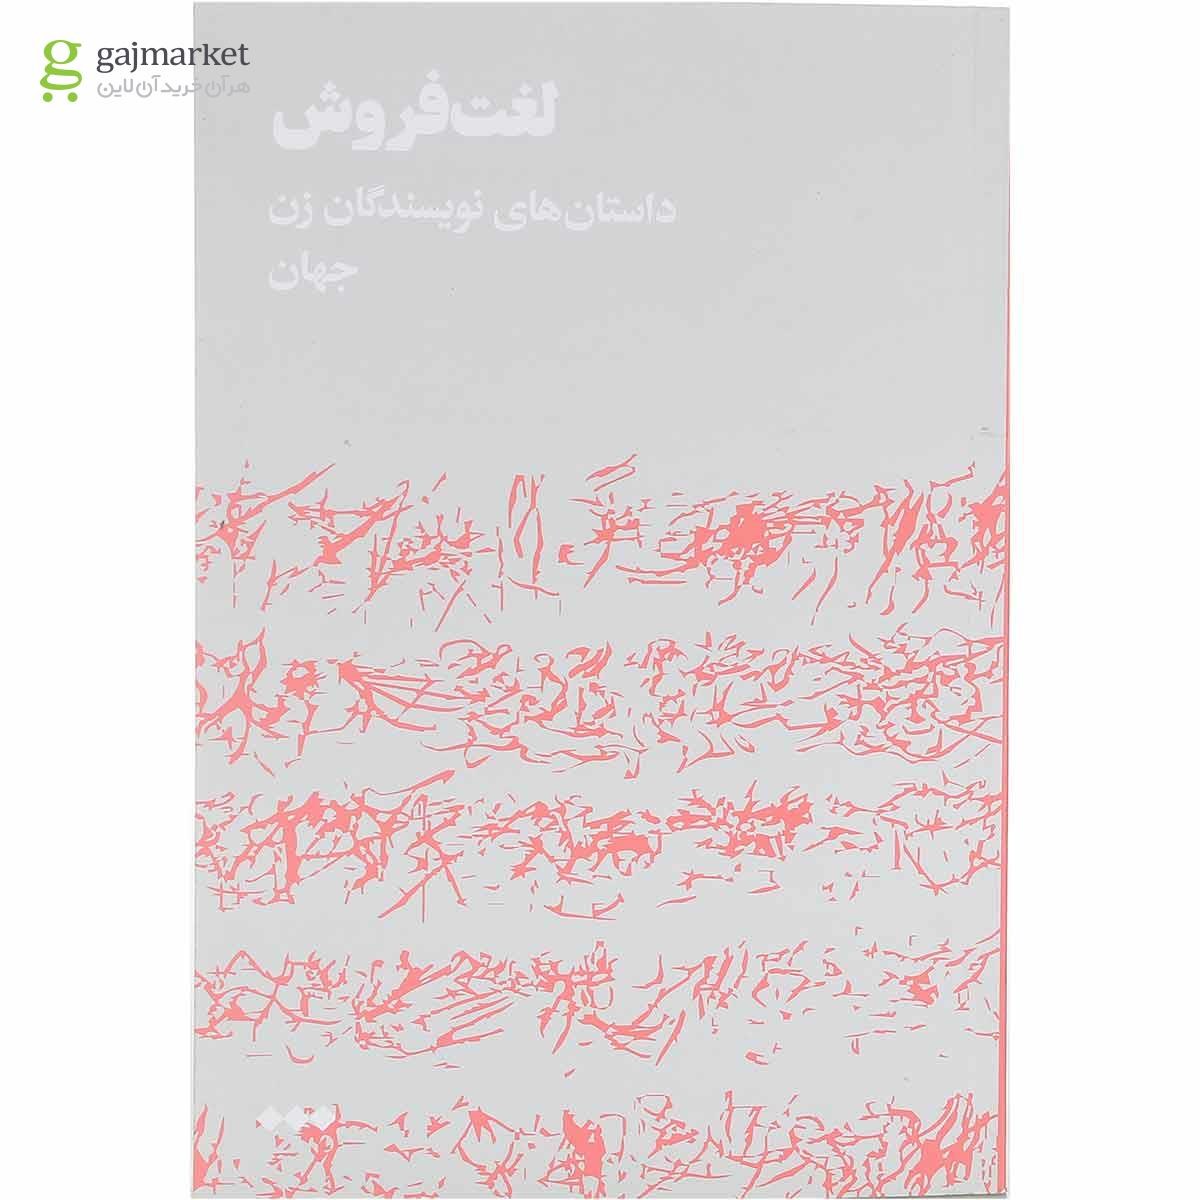 gajmarket
هرآن خرید آن لاین
لغت‌فروش
داستان‌های نویسندگان زن
جهان